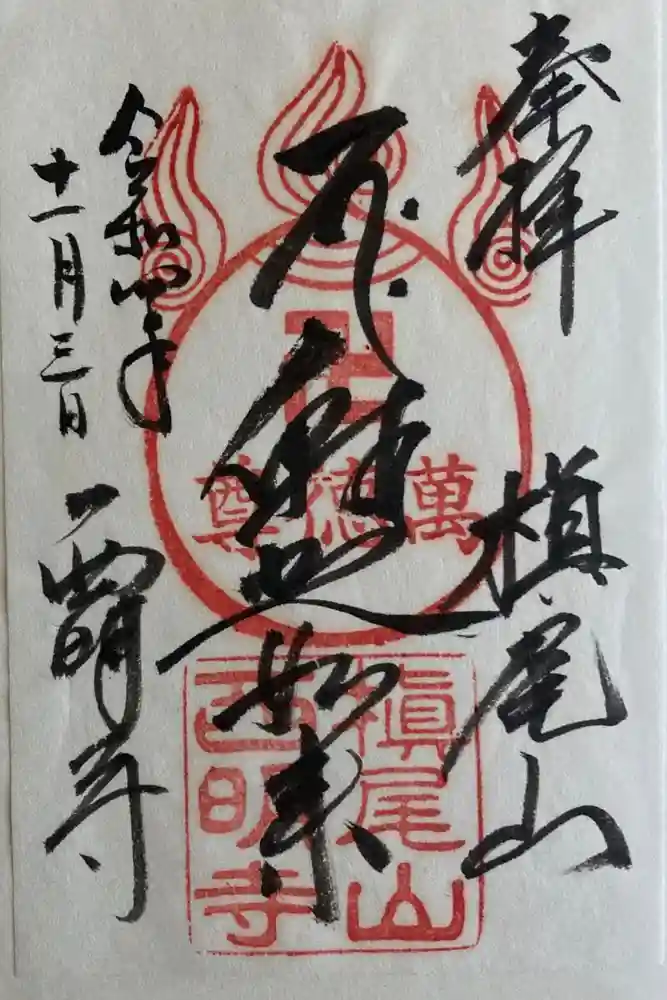 奉拝
槇尾山
釋迦如来
令和四年
十一月三日
西明寺
卍
萬德尊
槇尾山
西明寺